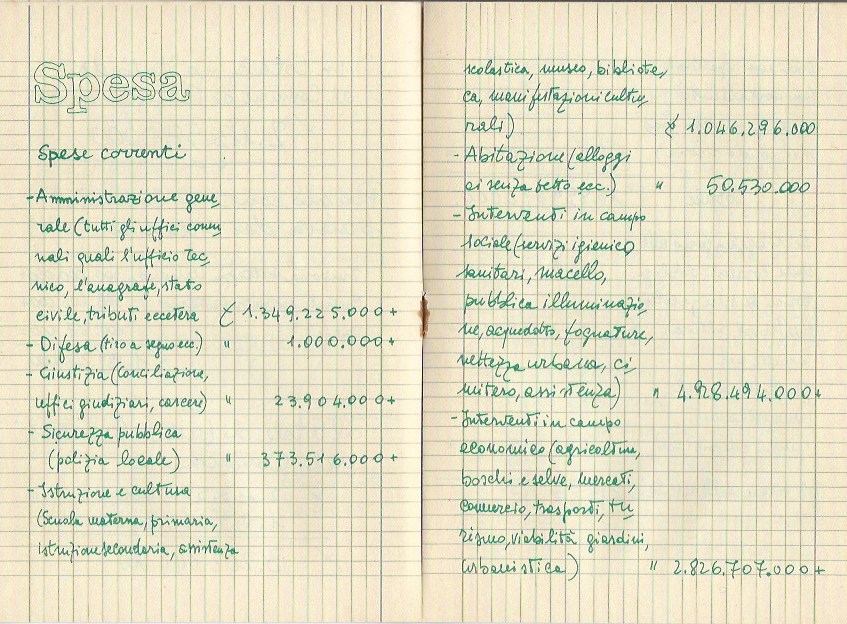 Spesa
Spese correnti
- Amministrazione gene,
rale (tutti gli uffici comu,
nali quali l'ufficio tec,
nico, l'anagrafe, stato
civile, tributi eccetera £ 1.349.225.000+
- Difesa (tiro a segno ecc.) " 1.000.000+
- Giustizia (Conciliazione,
uffici giudiziari, carcere) " 23.904.000+
- Sicurezza pubblica
(polizia locale) " 373.516.000+
- Istruzione e cultura
(Scuola materna, primaria,
istruzione secondaria, assistenza
scolastica, museo, bibliote,
ca, manifestazioni cultu,
rali) £ 1.046.296.000
- Abitazione (alloggi
ai senza tetto ecc.) " 50.530.000
- Interventi in campo
sociale (servizi igienico
sanitari, macello,
pubblica illuminazio,
ne, acquedotto, fognature,
nettezza urbana, ci,
mitero, assistenza) " 4.928.494.000+
- Interventi in campo
economico (agricoltura,
boschi e selve, mercati,
commercio, trasporti, tu
rismo, viabilità giardini,
urbanistica) " 2.826.707.000+